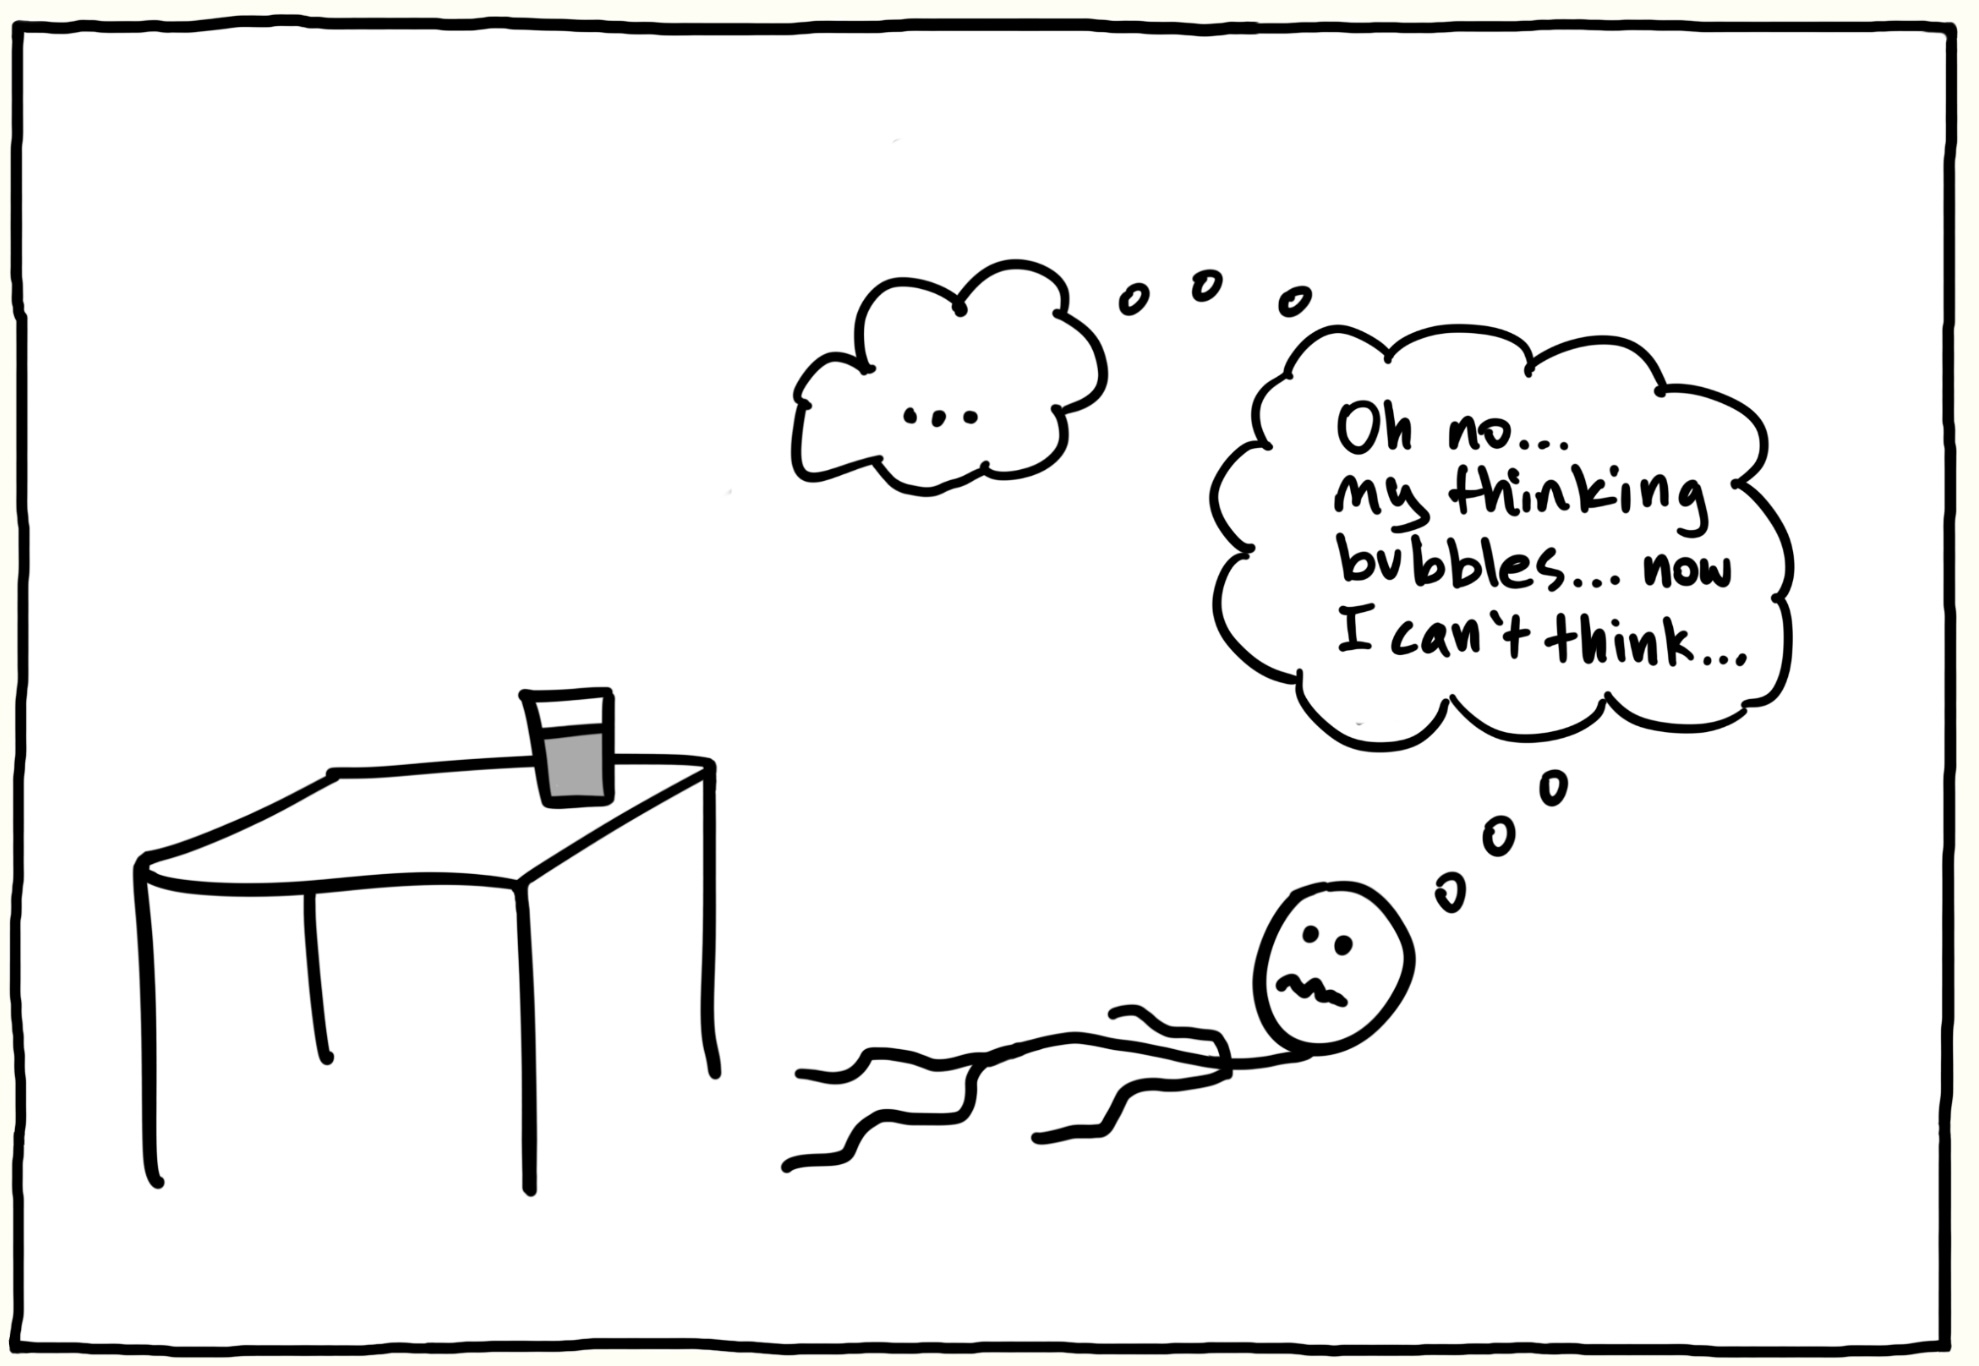 ...
Oh no...
my thinking
bubbles... now
I can't think...